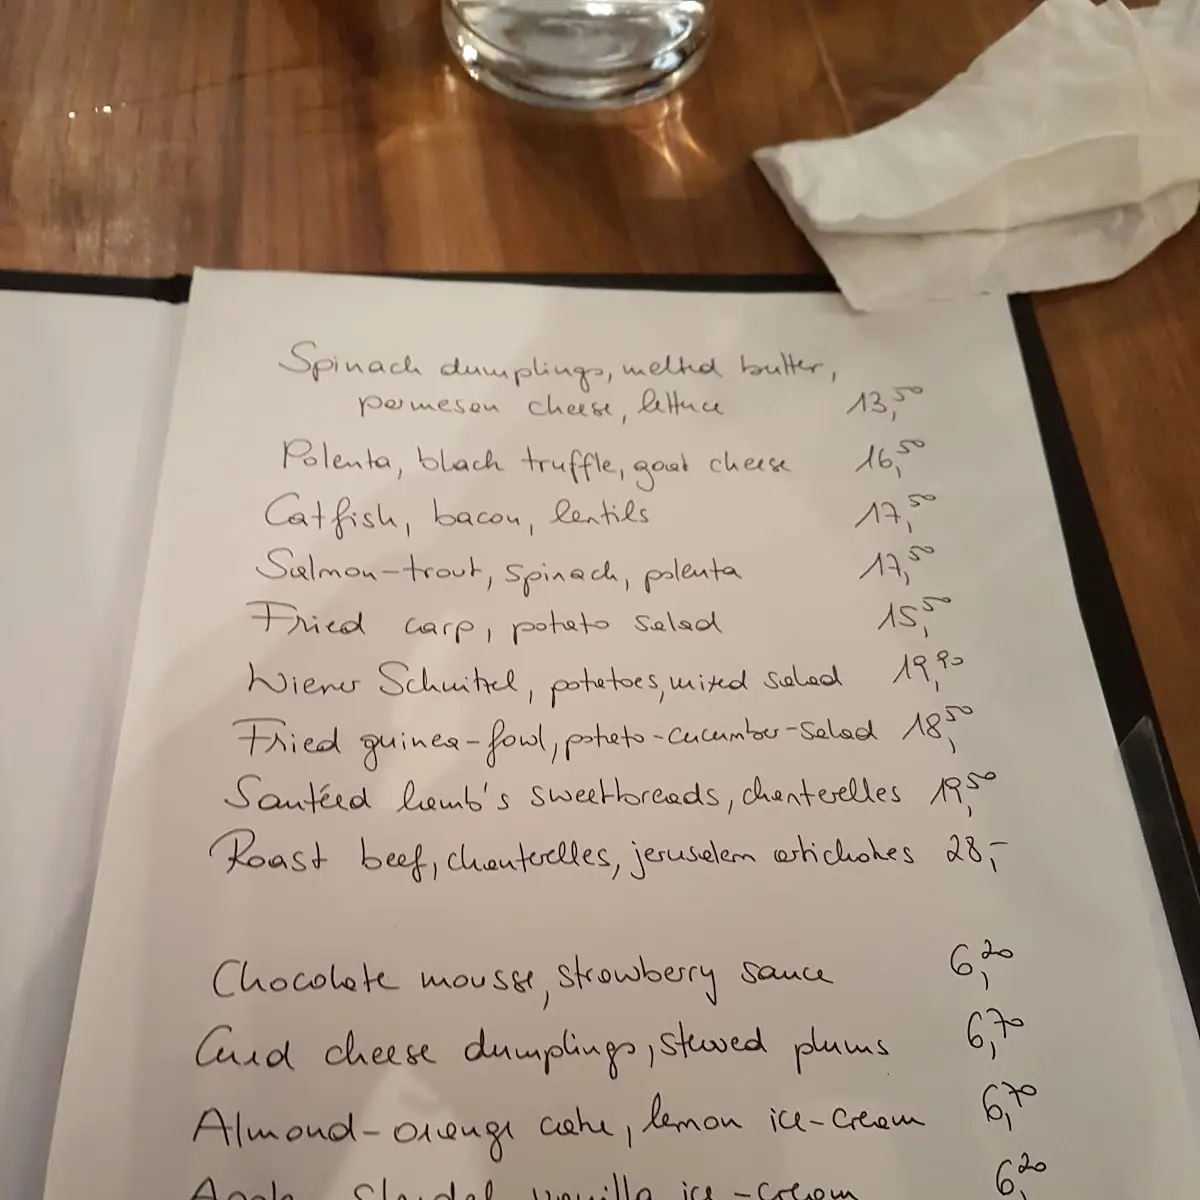 Spinach dumplings, melted butter,
parmesan cheese, lettuce 13,50
Polenta, black truffle, goat cheese 16,50
Catfish, bacon, lentils 17,50
Salmon-trout, spinach, polenta 17,50
Fried carp, potato salad 15,50
Wiener Schnitzel, potatoes, mixed salad 19,90
Fried guinea-fowl, potato-cucumber-salad 18,50
Sautéed lamb's sweetbreads, chanterelles 19,50
Roast beef, chanterelles, jerusalem artichokes 28,-
Chocolate mousse, strawberry sauce 6,20
Curd cheese dumplings, stewed plums 6,70
Almond-orange cake, lemon ice-cream 6,70
Apple strudel vanilla ice-cream 6,20